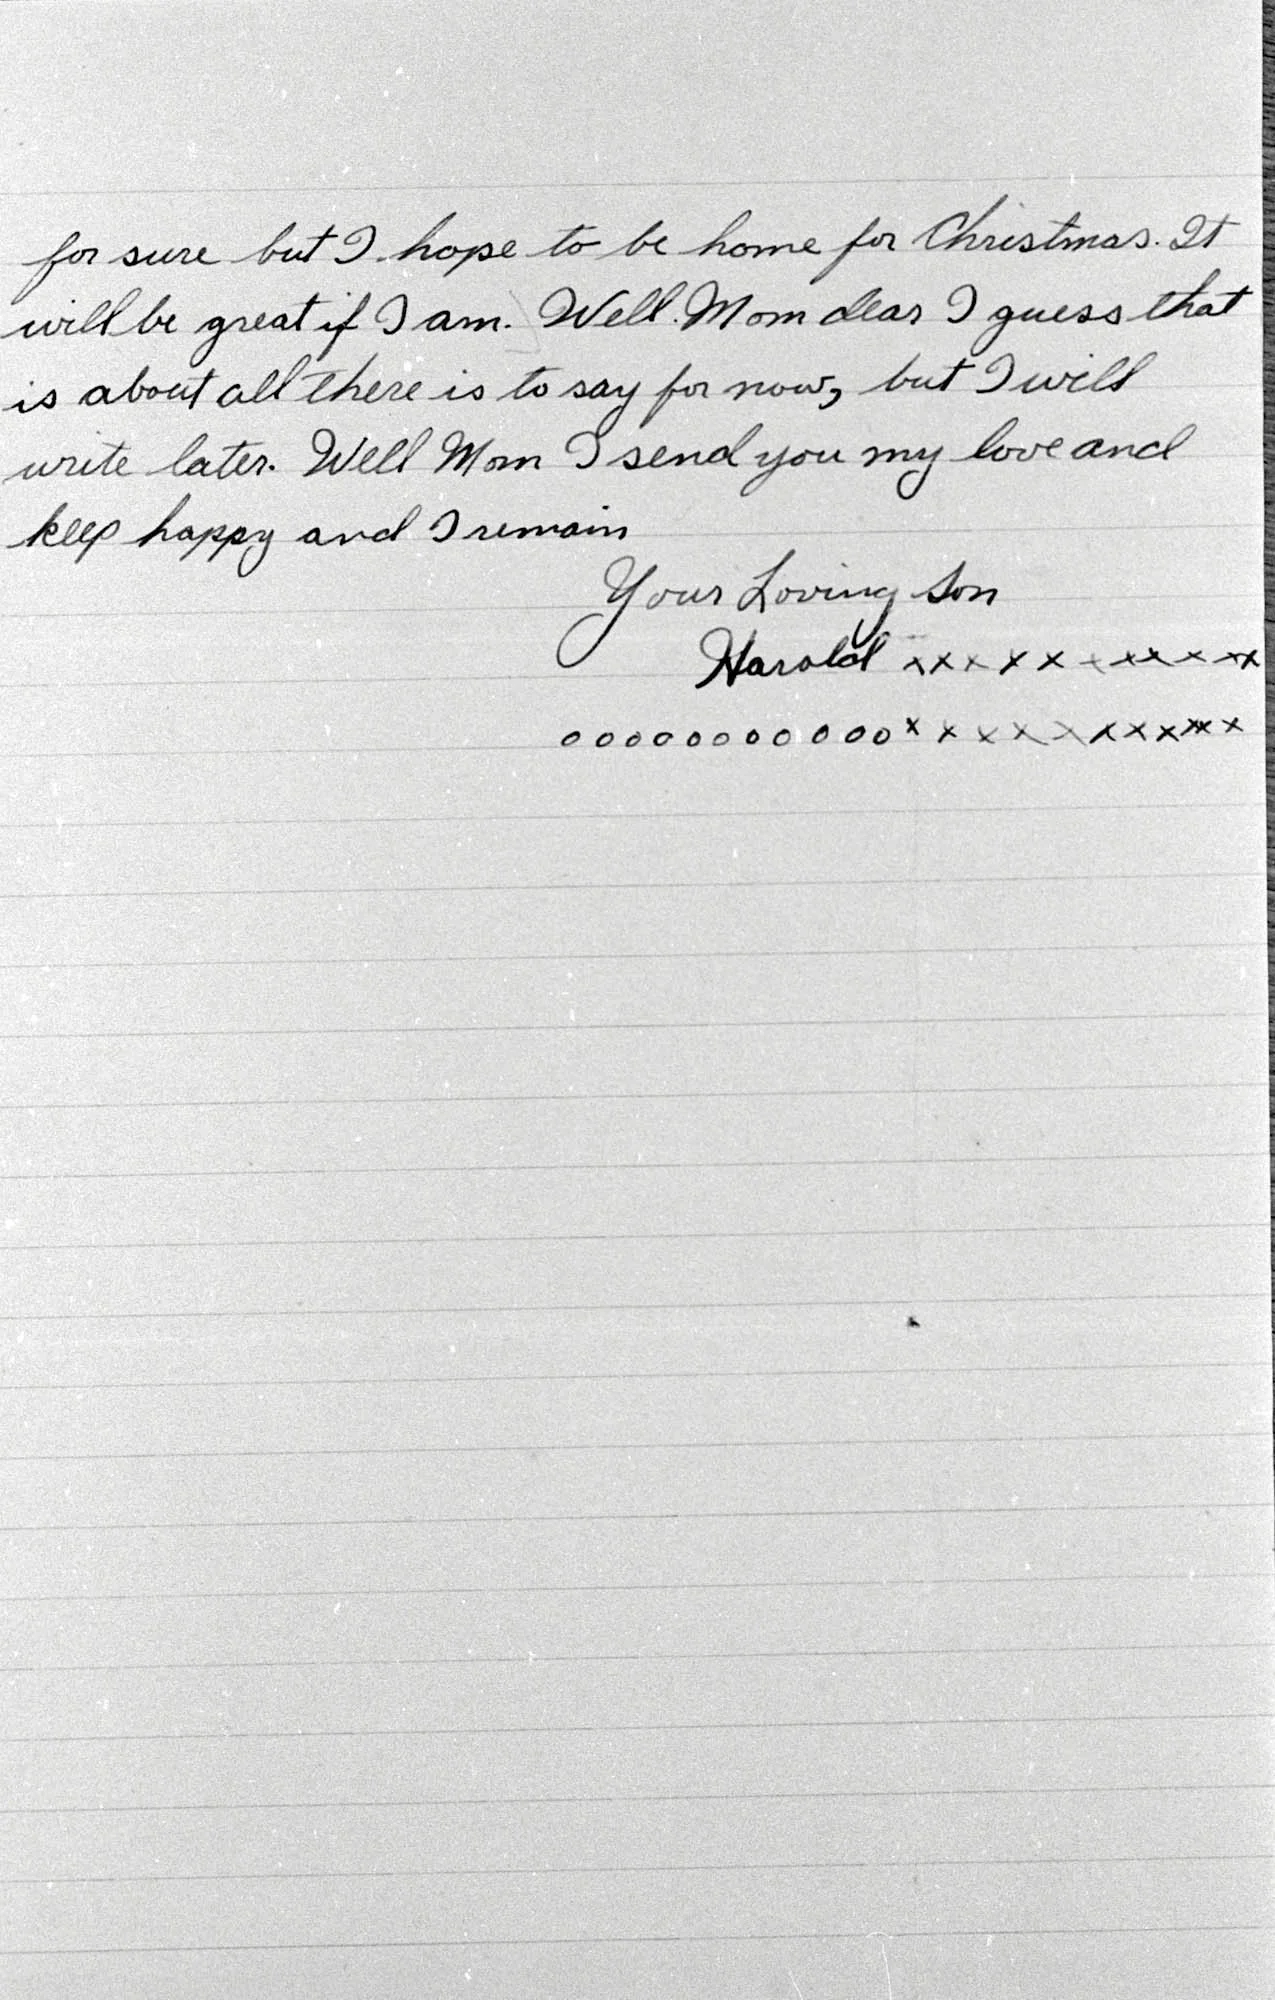 for sure but I hope to be home for Christmas. It
will be great if I am. Well Mom dear I guess that
is about all there is to say for now, but I will
write later. Well Mom I send you my love and
keep happy and I remain
Your Loving Son
Harold xxxxxxxxxxx
oooooooooooxxxxxxxxxxx